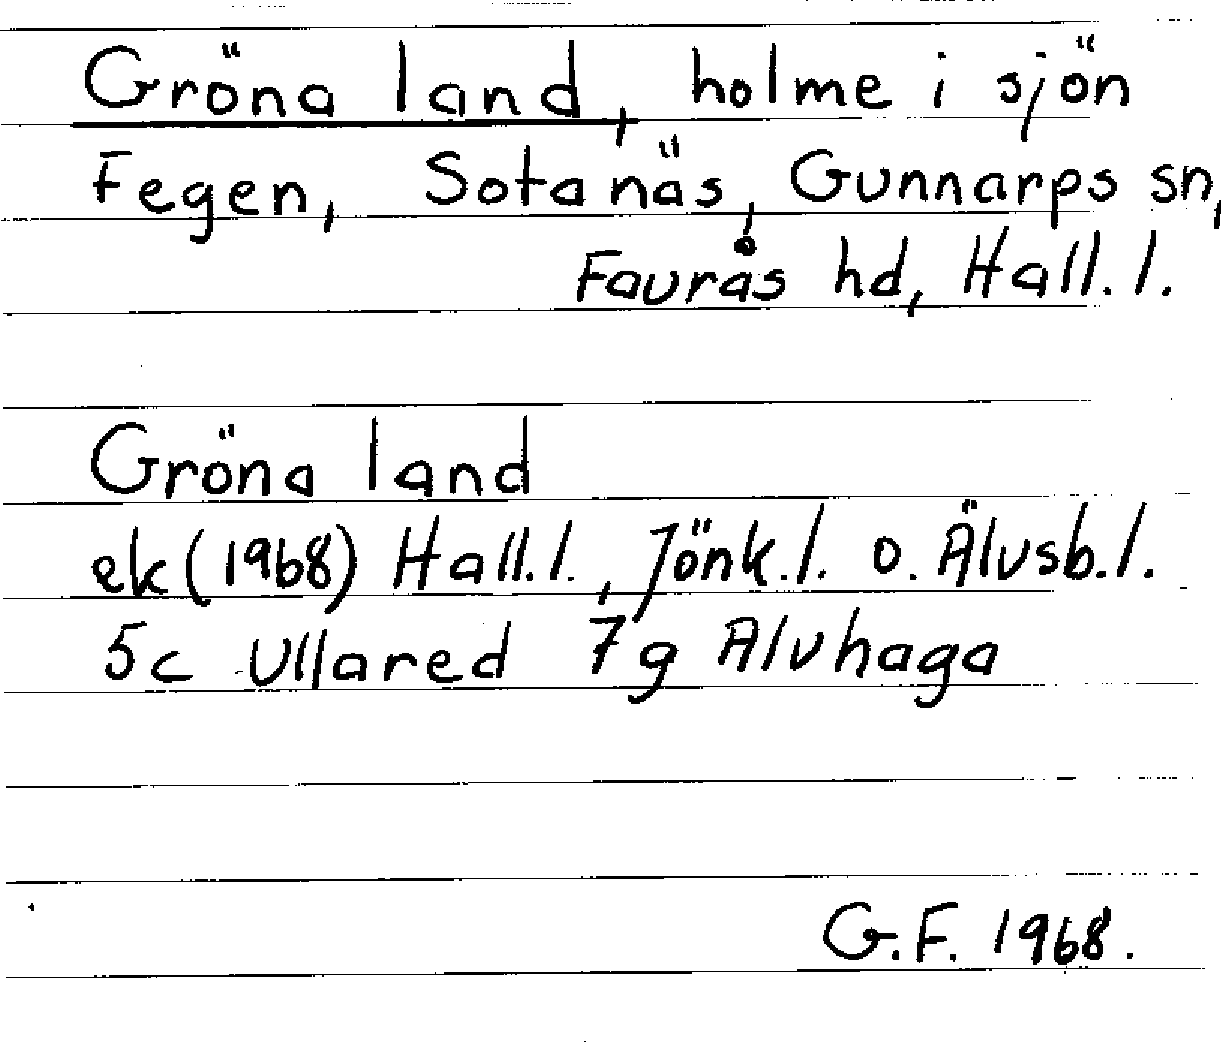 Gröna land, holme i sjön
Fegen, Sotanäs, Gunnarps sn,
Faurås hd, Hall.l.
Gröna land
ek (1968) Hall.l., Jönk.l. o. Älvsb.l.
5c Ullared 7g Alvhaga
G.F. 1968.